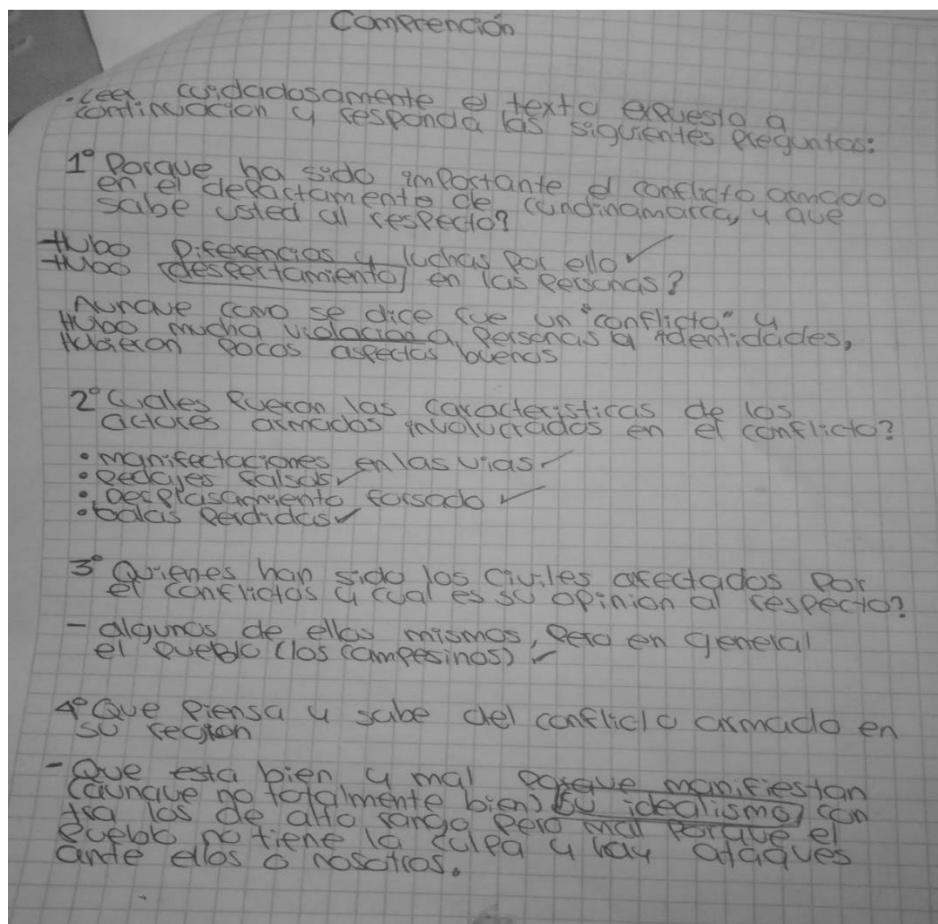 Comprención
·Leer cuidadosamente el texto expuesto a
continuacion y responda las siguientes preguntas:
1° Porque ha sido importante el conflicto armado
en el departamento de cundinamarca, y que
sabe usted al respecto?
Hubo Diferencias y luchas por ello ✓
Hubo despertamiento en las personas?
Aunque como se dice fue un "conflicto" y
Hubo mucha violacion a personas a identidades,
Hubieron pocos aspectos buenos
2° Cuales fueron las caracteristicas de los
actores armados involucrados en el conflicto?
• manifectaciones en las vias ✓
• pedajes falsos ✓
• Desplasamiento forsado ✓
• balas perdidas ✓
3° Quienes han sido los civiles afectados por
el conflictos y cual es su opinion al respecto?
- algunos de ellos mismos, pero en general
el pueblo (los campesinos) ✓
4° Que piensa y sabe del conflicto armado en
su region
- Que esta bien y mal porque manifiestan
(aunque no totalmente bien) su idealismo con
tra los de alto rango pero mal porque el
pueblo no tiene la culpa y hay ataques
ante ellos o nosotros.